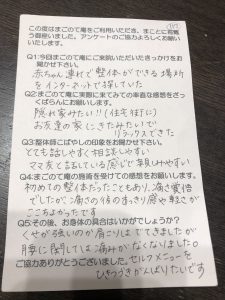 この度はまごのて庵をご利用いただき、まことに有難う御座いました。アンケートのご協力よろしくお願いいたします。
Q1:今回まごのて庵にご来院いただいたきっかけをお聞かせ下さい。
赤ちゃん連れで整体ができる場所
をインターネットで探していた
Q2:まごのて庵に実際に来てみての率直な感想をざっくばらんにお願いします。
隠れ家みたい!!(住宅街に)
お友達の家にきたみたいで
リラックスできた
Q3:整体師こばやしの印象をお聞かせ下さい。
とても話しやすく相談しやすい
ママ友と話している感じで気見しやすい
Q4:まごのて庵の施術を受けての感想をお願いします。
初めての整体だったこともあり、痛さ覚悟
でしたが、痛さの後のすっきり感や軽さが
ここちよかったです
Q5:その後、お身体の具合はいかがでしょうか?
くせが強いのか肩こりはでてきましたが
腰に関しては痛みがなくなりました。
ご協力ありがとうございました。セルフメニューを
ひきつづきがんばりたいです